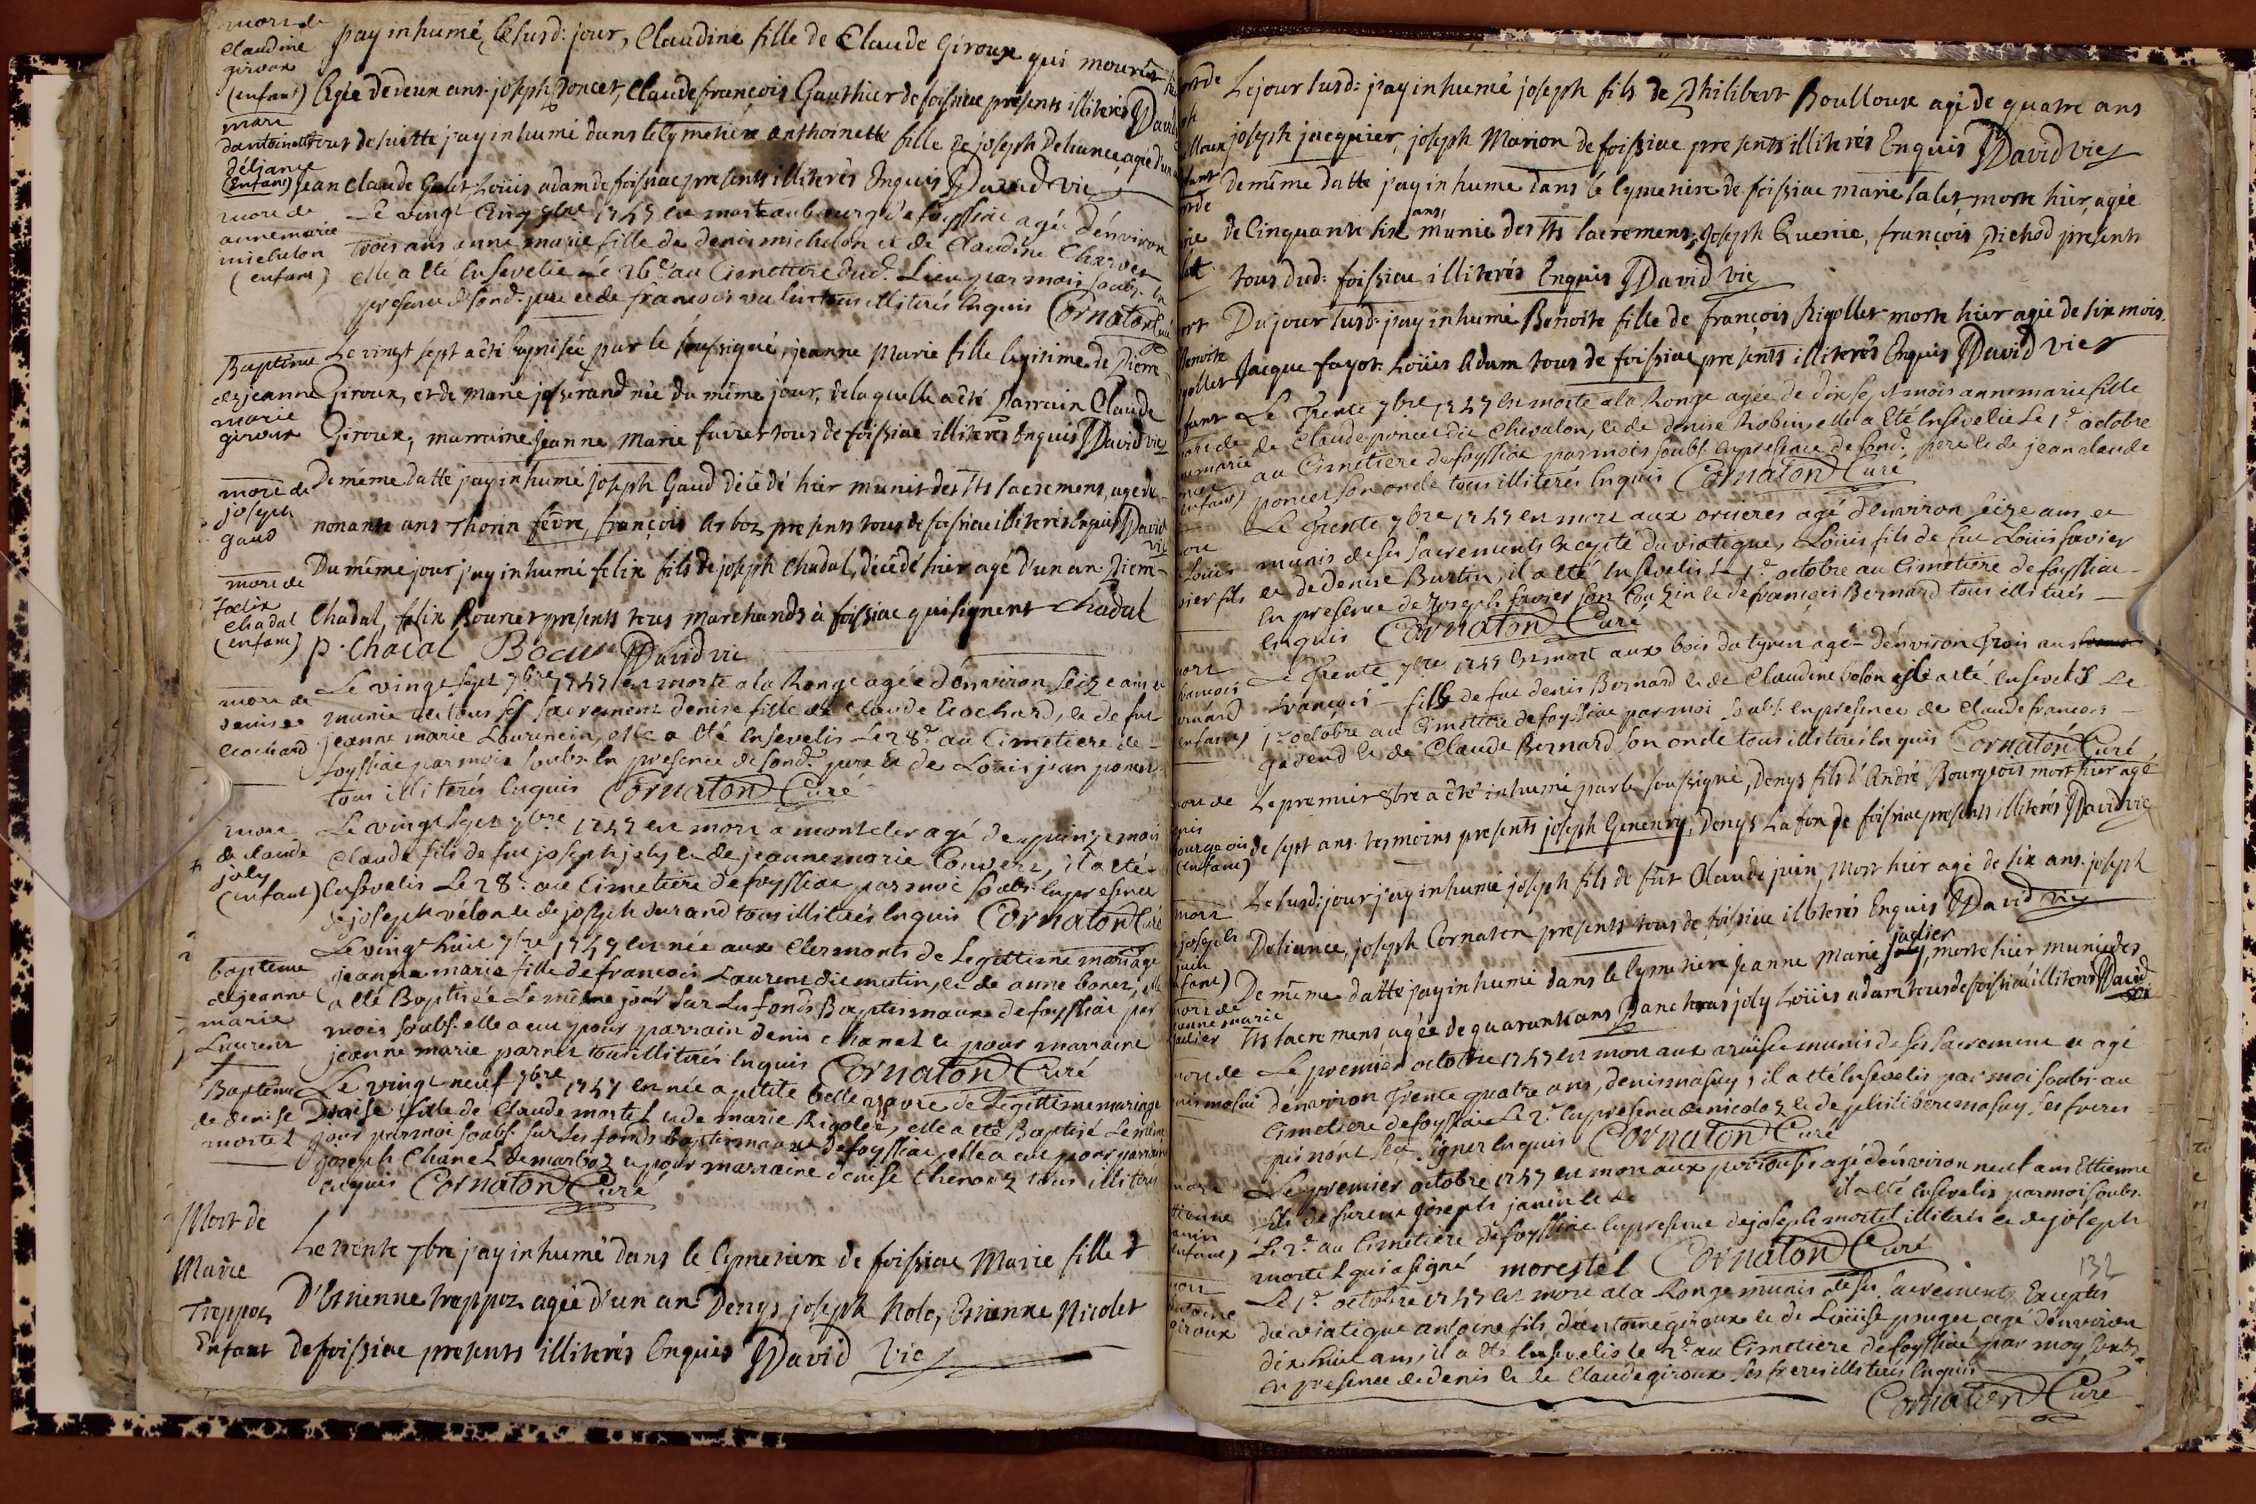 mort de
Claudine
giroux
(enfant)
jay inhumé, le susd: jour, Claudine fille de Claude Giroux qui mourût
agée de deux ans. joseph poncet, Claude françois Gauthier de foissiac présents illiterés David
mort
dantoinette
déliance
(enfant)
tout de suitte jay inhumé dans le Cymetiere anthoinette fille de joseph Deliance, agée d'un
jean Claude Galet Loüis adam de foissiac presents illiterés Enquis David vic
mort de
anne marie
michelon
(enfant)
Le vingt Cinq 7bre 1747 est morte au bourg de foyssiac agée d'environ
trois ans anne marie fille de denis michelon et de Claudine Charvet
elle a été Ensevelie Le 26e au Cimetiere dud. Lieu par moi soubs. En
presence de sond. pere et de francois tous illiterés Enquis Cornaton Curé
Baptême
de jeanne
marie
giroux
Le vingt sept a été baptisée par le soussigné, jeanne Marie fille legitime de Pierre
Giroux, et de Marie josserand née du même jour, de laquelle a été Parrain Claude
Giroux, marraine Jeanne Marie favier tous de foissiac illiterés Enquis David vic
mort de
joseph
gaud
De même datte jay inhumé Joseph Gaud décédé hier munit des Sts sacremens, agé de
nonante ans Thorin fêvre, françois Arboz presents tous de foissiac illiterés Enquis David
vic
mort de
Felix
Chadal
(enfant)
Du même jour jay inhumé felix fils de joseph Chadal, décédé hier agé d'un an. Pierre
Chadal, felix Bourcet presents tous marchands à foissiac qui signent Chadal
p. Chadal David vic
mort de
denise
Cochard
Le vingt sept 7bre 1747 est morte a la Ronge agée d'environ seize ans et
munie de tous ses sacrements denise fille de Claude Cochard, et de fut
jeanne marie Laurencin, elle a été Ensevelis Le 28e au Cimetiere de
foyssiac par moi soubs. En presence de sond. pere et de Louis jean poncet
tous illiterés Enquis Cornaton Curé
mort
de claude
joly
(enfant)
Le vingt sept 7bre 1747 est mort a montcler agé de quinze mois
Claude fils de fut joseph joly et de jeanne marie Convert, il a été
Ensevelis Le 28e au Cimetiere de foyssiac par moi soubs. En presence
de joseph vélon et de joseph durand tous illiterés Enquis Cornaton Curé
bapteme
de jeanne
marie
Laurent
Le vingt huit 7bre 1747 est née aux Clermonts de Legittime mariage
jeanne marie fille de francois Laurent dit mutin, et de anne bonet, elle
a été Baptisée Le même jour sur Les fonds Baptismaux de foyssiac par
moi soubs. elle a eut pour parrain denis Chanel et pour marraine
jeanne marie parnet tous illiterés Enquis Cornaton Curé
Baptême
de denise
mortel
Le vingt neuf 7bre 1747 est née a petite belle vavre de Legittime mariage
Denise fille de Claude mortel et de marie Rigolet, elle a été Baptisé Le même
jour par moi soubs. sur Les fonds baptismaux de foyssiac, elle a eut pour parrain
joseph Chanel de marboz et pour marraine denise Chenoux tous illiterés
Enquis Cornaton Curé
Mort de
Marie
Treppoz
Enfant
Le trente 7bre jay inhumé dans le Cymetiere de foissiac Marie fille
D'Etienne treppoz agée d'un an Denys, joseph Nole, Etienne Nicolet
de foissiac presents illiterés Enquis David Vic
Le jour susd: jay inhumé joseph fils de Philibert Boulloux agé de quatre ans
joseph jacquier, joseph Marion de foissiac presents illiterés Enquis David vic
De même datte jay inhumé dans le Cymetiere de foissiac marie Galet morte hier, agée
de Cinquante six ans, munie des Sts sacremens, Joseph Quenie, françois Pichod présents
tous dud: foissiac illiterés Enquis David vic
Benoite
Du jour susd: jay inhumé Benoite fille de françois Rigollet morte hier agée de six mois.
Jacque fayot. Loüis Adam tous de foissiac presents illiterés Enquis David vic
Le trente 7bre 1747 est morte a la Ronge agée de dix sept mois anne marie fille
de Claude poncet dit Chevalon, et de denise Robin, elle a été Ensevelie Le 1er octobre
au Cimetiere de foyssiac par moi soubs. En presence de sond. pere et de jean claude
poncet son oncle tous illiterés Enquis Cornaton Curé
Le trente 7bre 1747 est mort aux orcieres agé d'environ seize ans et
munis de ses sacrements Excepté du viatique, Loüis fils de fut Loüis favier
et de Denise Burtin, il a été Ensevelis Le 1er octobre au Cimetiere de foyssiac
En presence de joseph favier son Couzin et de françois Bernard tous illiterés
Enquis Cornaton Curé
Le trente 7bre 1747 est mort aux bois du tyret agé d'environ trois ans
francois fils de fut denis Bernard et de Claudine bolon il a été Ensevelis Le
1er octobre au Cimetiere de foyssiac par moi soubs. En presence de Claude francois
gadend et de Claude Bernard son oncle tous illiterés Enquis Cornaton Curé
Le premier 8bre a été inhumé par le soussigné, Denys fils d'André Bourgeois mort hier agé
de sept ans. tesmoins presents joseph Genenry, Denys Lafon de foissiac presents illiterés David vic
Le susd: jour jay inhumé joseph fils de fût Claude juin, Mort hier agé de six ans. joseph
Deliance, joseph Cornaton presents tous de foissiac illiterés Enquis David vic
De même datte jay inhumé dans le Cymetiere Jeanne Marie jullier, morte hier munie des
Sts sacremens agée de quarante ans Panchras joly Loüis adam tous de foissiac illiterés David
vic
Le premier octobre 1747 est mort aux munis de ses sacrement et agé
d'environ trente quatre ans, denis masuy, il a été Ensevelis par moi soubs. au
Cimetiere de foyssiac Le 2e En presence de nicolas et de philibert masuy ses freres
qui n'ont sçu signer Enquis Cornaton Curé
Le premier octobre 1747 est mort aux agé d'environ neuf ans Ettienne
fils de joseph janin et de il a été Ensevelis par moi soubs.
Le 2e au Cimetiere de foyssiac En presence de joseph mortel illiteré et de joseph
mortel qui a signé morestel Cornaton Curé
132
Le 1er octobre 1747 est mort a la Ronge munis de ses sacrements Excepter
du viatique antoine fils d'antoine giroux et de Loüise puget agé d'environ
dix huit ans, il a été Ensevelis le 2e au Cimetiere de foyssiac par moy soubs.
En presence de denis et de Claude giroux ses freres illiterés Enquis
Cornaton Curé